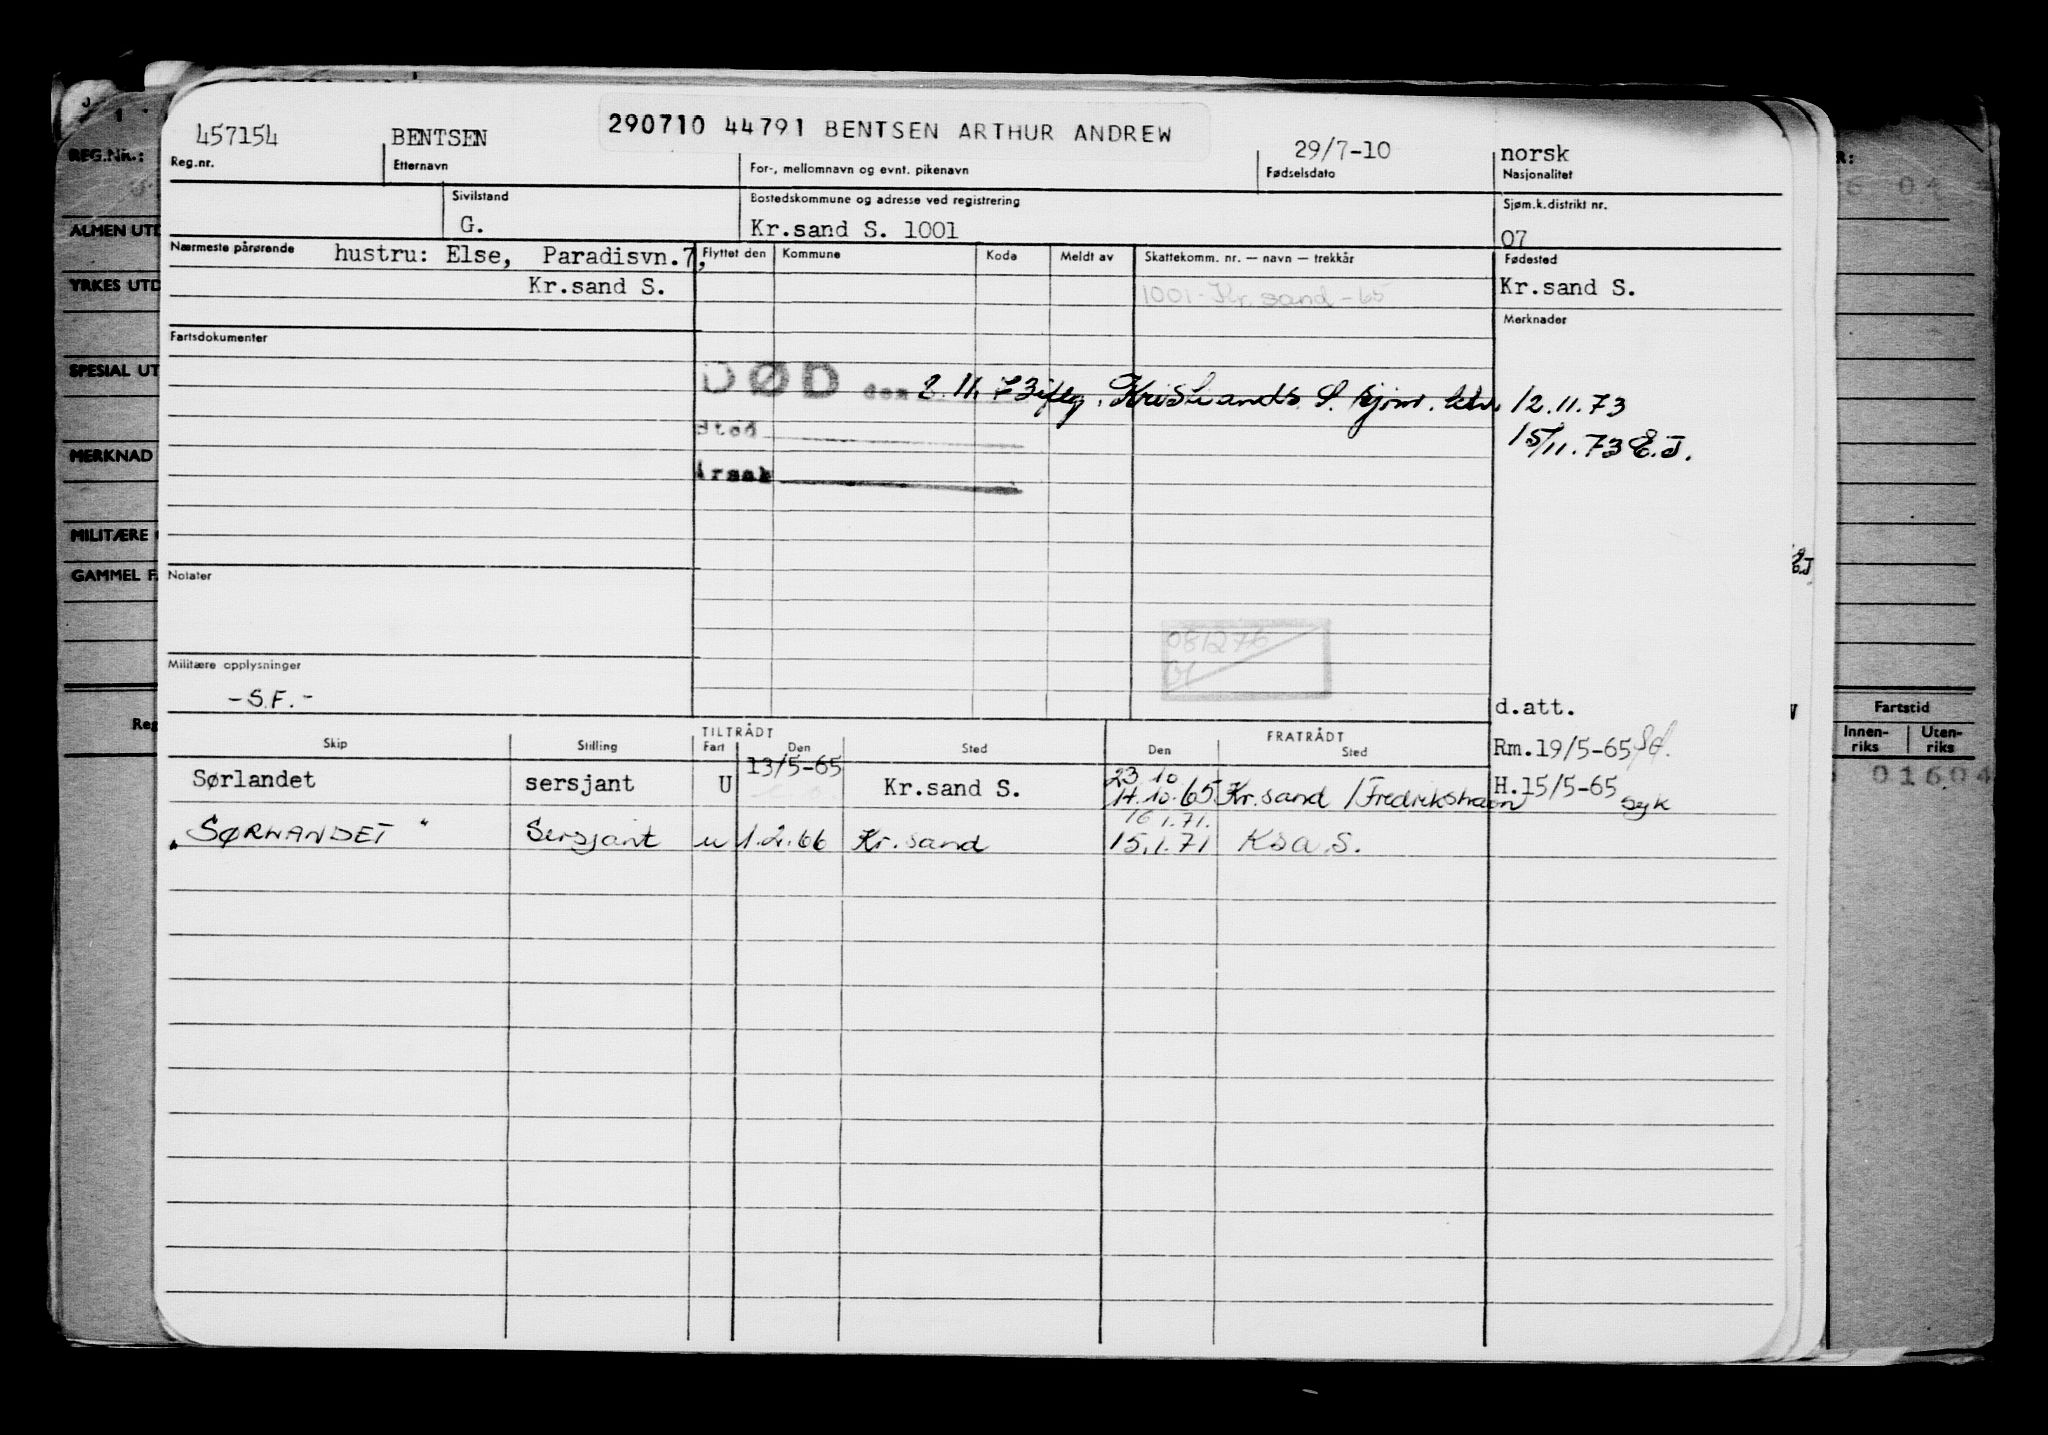 457154 BENTSEN 290710 44791 BENTSEN ARTHUR ANDREW 29/7-10 norsk
Reg.nr. Etternavn For-, mellomnavn og evnt. pikenavn Fødselsdato Nasjonalitet
Sivilstand Bostedskommune og adresse ved registrering Sjøm.k.distrikt nr.
G. Kr.sand S. 1001 07
Nærmeste pårørende hustru: Else, Paradisvn.7, Flyttet den Kommune Kode Meldt av Skattekomm. nr. — navn — trekkår Fødested
Kr.sand S. 1001-Kr.sand-65 Kr.sand S.
Merknader
Fartsdokumenter
DØD den 2.11.73 iflg. Kristiansands S. sjøm. ktr. 12.11.73
Sted 15/11.73 E.J.
Årsak
Notater
081276
Militære opplysninger
-S.F.- d.att.
Skip Stilling TILTRÅDT Fart Den Sted FRATRÅDT Den Sted Rm.19/5-65
Sørlandet sersjant U 13/5-65 Kr.sand S. 23.10 14.10.65 Kr.sand / Fredrikshavn H.15/5-65 syk
"SØRLANDET" Sersjant u 1.2.66 Kr.sand 16.1.71. 15.1.71 Ksa.S.
REG.NR.:
ALMEN UTD
YRKES UTD
SPESIAL UT
MERKNAD
MILITÆRE
GAMMEL FA
Reg
R:
E.J
Fartstid
Innen-riks Uten-riks
01604